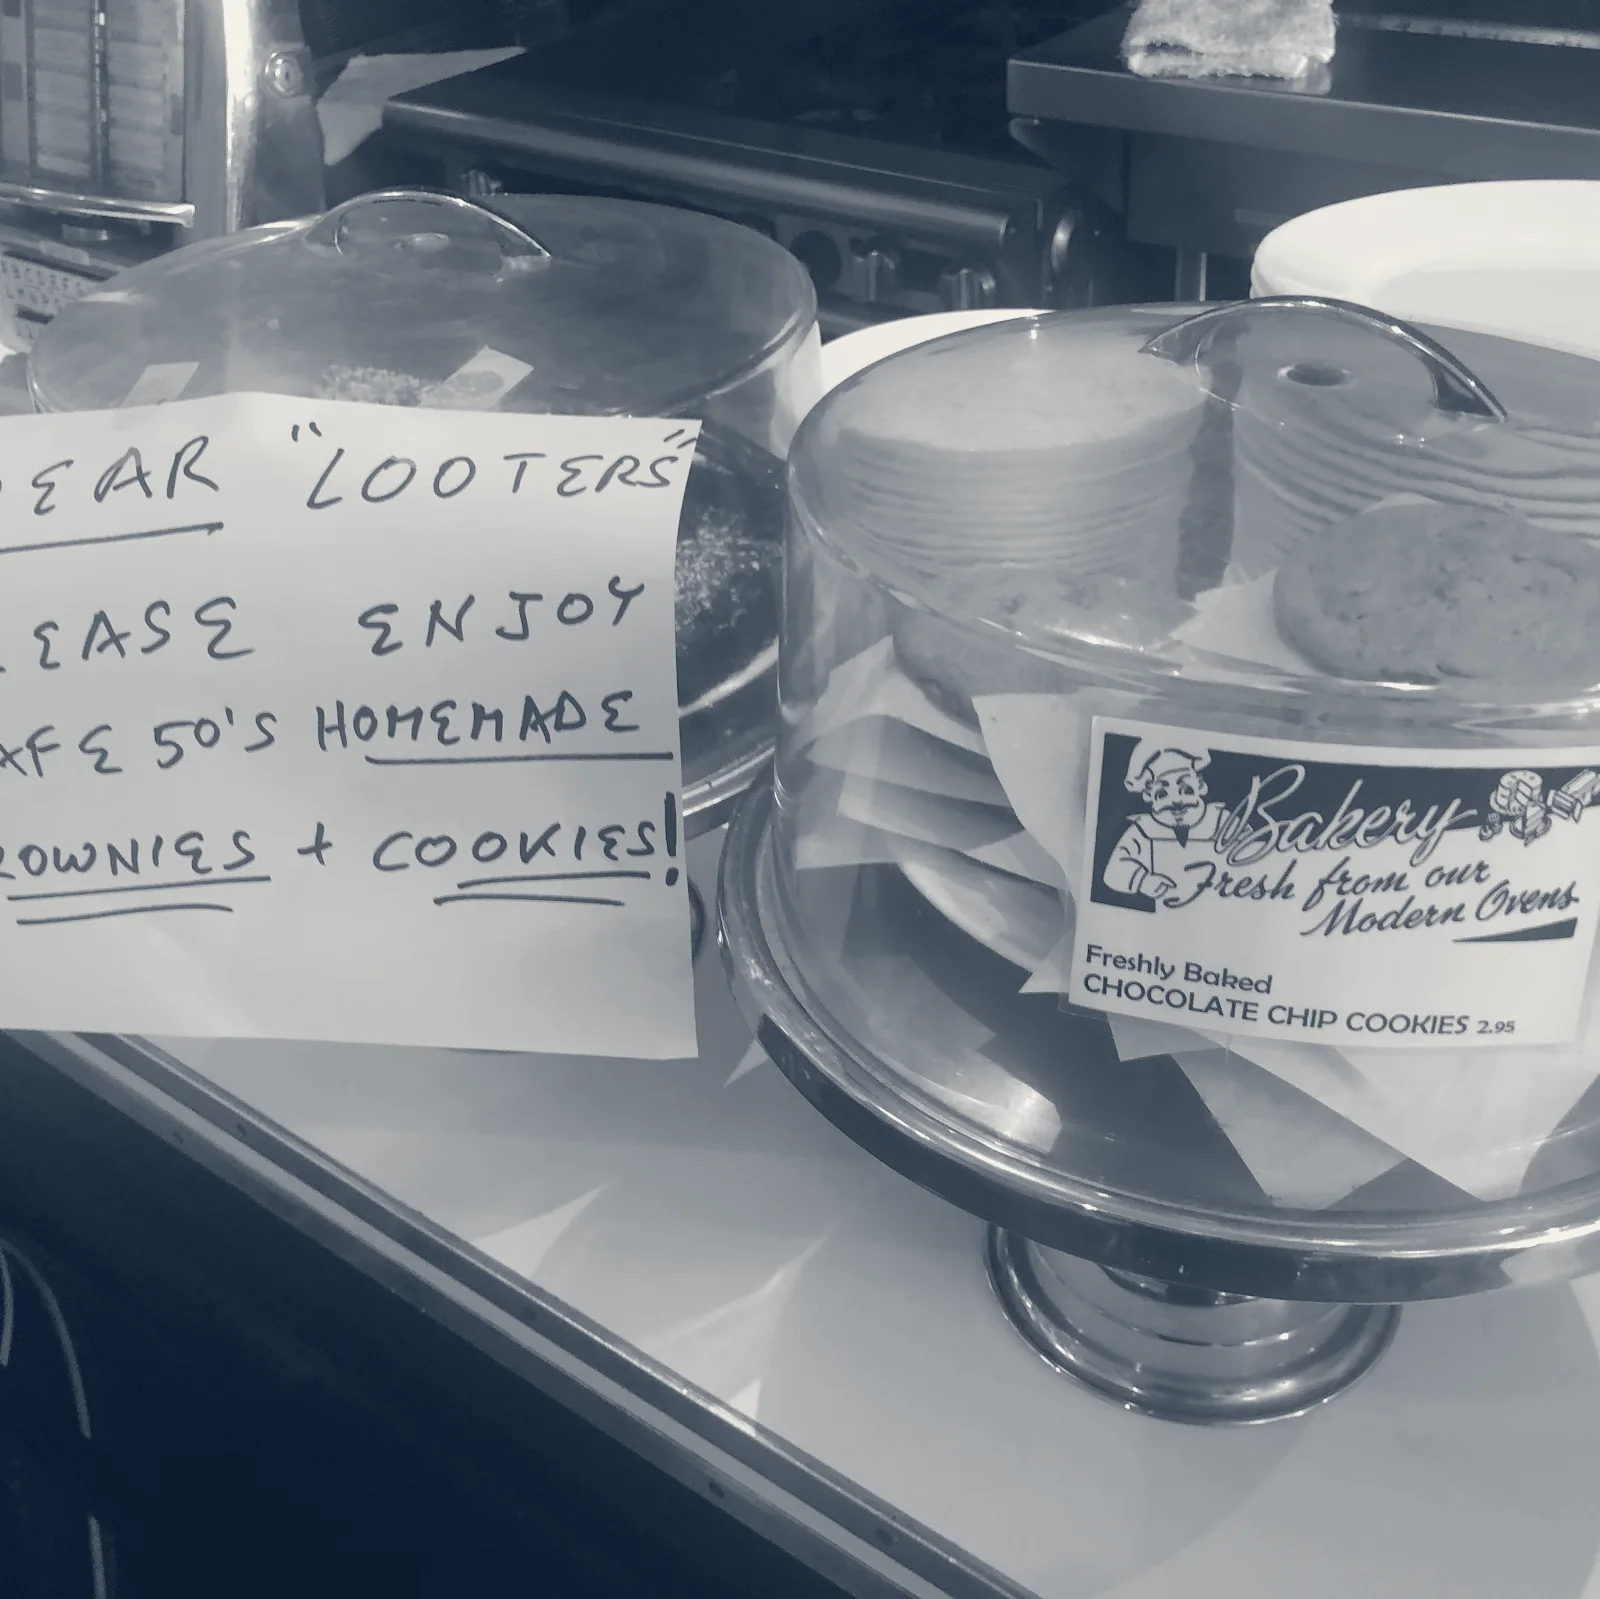 EAR "LOOTERS"
EASE ENJOY
AFE 50's HOMEMADE
ROWNIES + COOKIES!
Bakery
Fresh from our
Modern Ovens
Freshly Baked
CHOCOLATE CHIP COOKIES 2.95